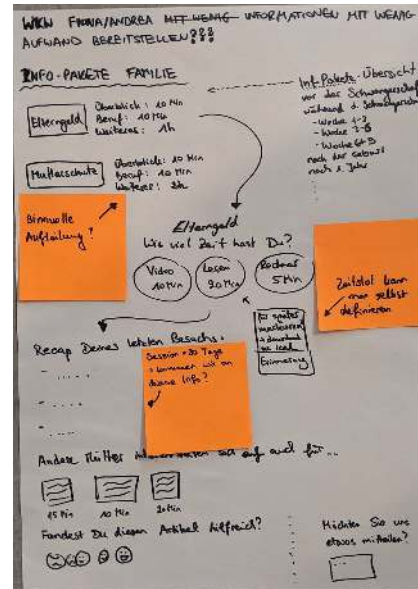 WKW FIONA/ANDREA MIT WENIG INFORMATIONEN MIT WENIG
AUFWAND BEREITSTELLEN???
INFO-PAKETE FAMILIE
Elterngeld
Überblick: 10 Min
Beruf: 10 Min
Weiteres: 1h
Mutterschutz
Überblick: 10 Min
Beruf: 10 Min
Weiteres: 2h
Info-Pakete-Übersicht
vor der Schwangerschaft
während d. Schwangerschaft
- Woche 1-3
- Woche
- Woche
nach der Geburt
nach 1. Jahr
Sinnvolle
Aufteilung?
Elterngeld
Wie viel Zeit hast Du?
Video
10 Min
Lesen
20 Min
Rechner
5 Min
Zeitslot kann
man selbst
definieren
für später
Erinnerung
Recap Deines letzten Besuchs.
Session > 30 Tage
kommen wir an
diese Info?
Andere Mütter interessierten sich auch für...
15 Min
10 Min
20 Min
Fandest Du diesen Artikel hilfreich?
Möchten Sie uns
etwas mitteilen?